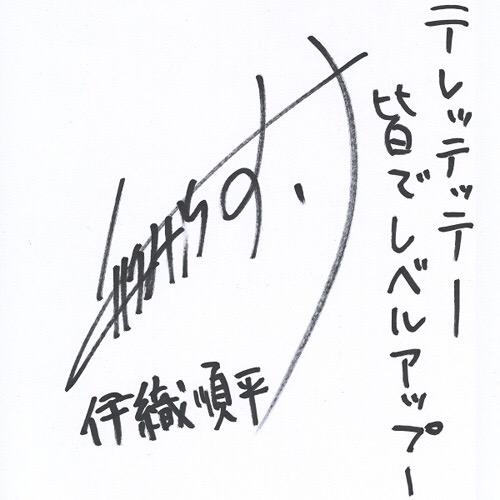 テレッテッテー
皆でレベルアップー
伊織順平